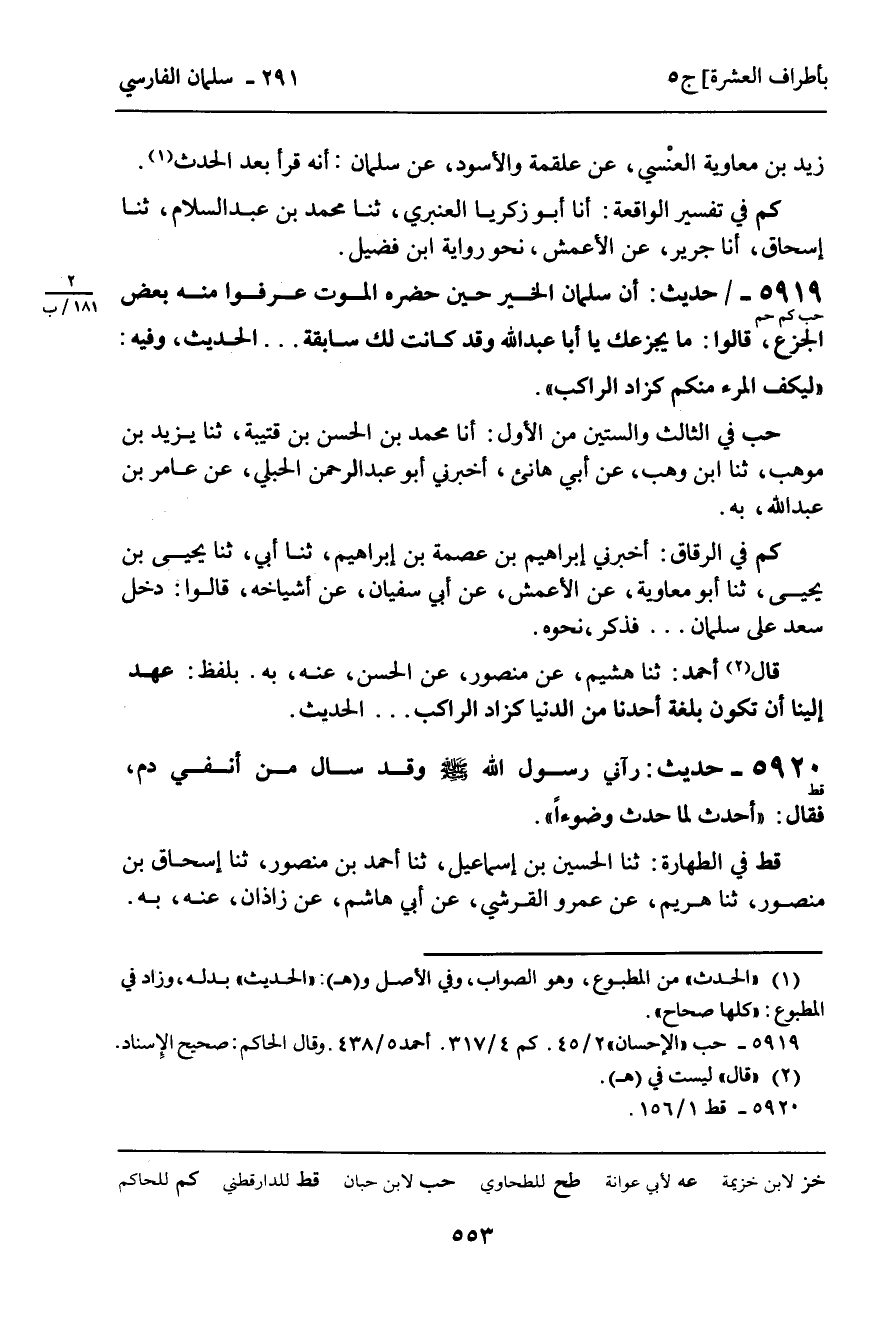 بأطراف العشرة] ج٥
٢٩١ ـ سلمان الفارسي
زيد بن معاوية العنْسي، عن علقمة والأسود، عن سلمان: أنه قرأ بعد الحدث(١).
كم في تفسير الواقعة: أنا أبو زكريا العنبري، ثنا محمد بن عبدالسلام، ثنا
إسحاق، أنا جرير، عن الأعمش، نحو رواية ابن فضيل.
٥٩١٩ ـ / حديث: أن سلمان الخير حين حضره الموت عرفوا منه بعض
٢
١٨١/ب
حب كم حم
الجزع، قالوا: ما يجزعك يا أبا عبدالله وقد كانت لك سابقة... الحديث، وفيه:
«ليكف المرء منكم كزاد الراكب».
حب في الثالث والستين من الأول: أنا محمد بن الحسن بن قتيبة، ثنا يزيد بن
موهب، ثنا ابن وهب، عن أبي هانئ، أخبرني أبو عبدالرحمن الحبلي، عن عامر بن
عبدالله، به.
كم في الرقاق: أخبرني إبراهيم بن عصمة بن إبراهيم، ثنا أبي، ثنا يحيى بن
يحيى، ثنا أبو معاوية، عن الأعمش، عن أبي سفيان، عن أشياخه، قالوا: دخل
سعد على سلمان... فذكر، نحوه.
قال(٢) أحمد: ثنا هشيم، عن منصور، عن الحسن، عنه، به. بلفظ: عهد
إلينا أن تكون بلغة أحدنا من الدنيا كزاد الراكب... الحديث.
٥٩٢٠ ـ حديث: رآني رسول الله ﷺ وقد سال من أنفي دم،
قط
فقال: «أحدث لما حدث وضوءاً».
قط في الطهارة: ثنا الحسين بن إسماعيل، ثنا أحمد بن منصور، ثنا إسحاق بن
منصور، ثنا هريم، عن عمرو القرشي، عن أبي هاشم، عن زاذان، عنه، به.
(١) «الحدث» من المطبوع، وهو الصواب، وفي الأصل و(هـ): «الحديث» بدله، وزاد في
المطبوع: «كلها صحاح».
٥٩١٩ ـ حب «الإحسان» ٤٥/٢. كم ٣١٧/٤. أحمد ٤٣٨/٥. وقال الحاكم: صحيح الإسناد.
(٢) «قال» ليست في (هـ).
٥٩٢٠ ـ قط ١٥٦/١.
خز لابن خزيمة عه لأبي عوانة طح للطحاوي حب لابن حبان قط للدارقطني كم للحاكم
٥٥٣